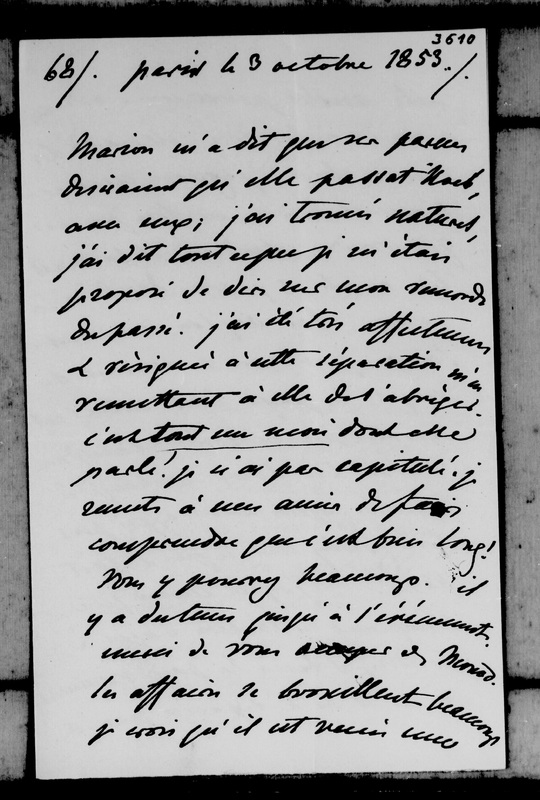 3610
68/. paris le 3 octobre 1853./.
Marion m'a dit que ses parens
désiraient qu'elle passat
avec eux; j'ai trouvé naturel,
j'ai dit tout ce que je m'étais
proposé de dire sur mon remords
du passé. j'ai été très affectueuse
& résignée à cette séparation m'en
remettant à elle de l'abréger.
c'est tout un mois dont elle
parle! je n'ai pas capitulé. je
remets à mes amis de faire
comprendre que c'est bien long!
vous y pouvez beaucoup. il
y a du tems jusqu'à l'événement.
merci de vous occuper de
les affaires se brouillent beaucoup
je crois qu'il est venu une